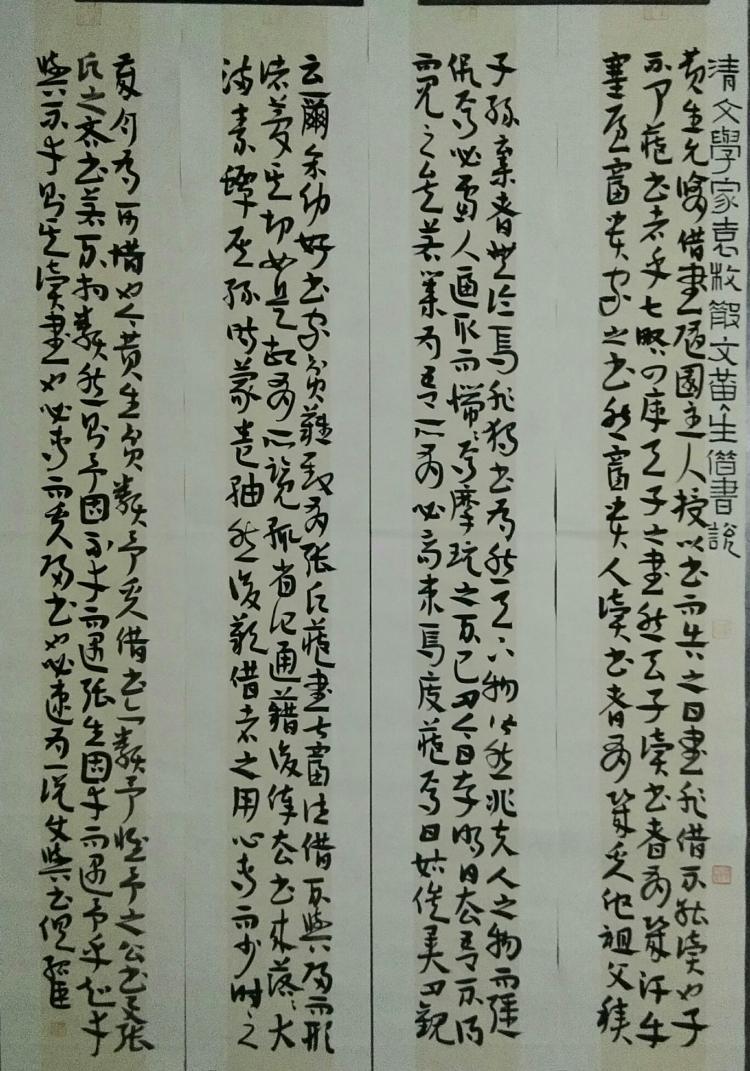 清文學家袁枚散文黄生借書説
黄生允修借書随園主人授以书而告之曰書非借不能读也子
不闻藏书者乎七略四库天子之書然天子读书者有幾汗牛
塞屋富贵家之书然富贵人读书者有幾其他祖父積
子孫棄者無论焉非独书为然天下物皆然非夫人之物而强
假焉必虑人逼取而惴惴焉摩玩之不已曰今日存明日去吾不得
而見之矣若業为吾所有必高束焉庋藏焉曰姑俟異日觀
云爾余幼好书家贫難致有张氏藏書甚富往借不與归而形
诸夢其切如是故有所览辄省记通籍後俸去书来落落大
满素蟫灰絲时蒙卷轴然後歎借者之用心专而少时之
歲月为可惜也今黄生贫類予其借书亦類予惟予之公书與张
氏之吝书若不相類然则予固不幸而遇张生固幸而遇予乎知幸
與不幸则其读書也必专而其归书也必速为一说使與书俱